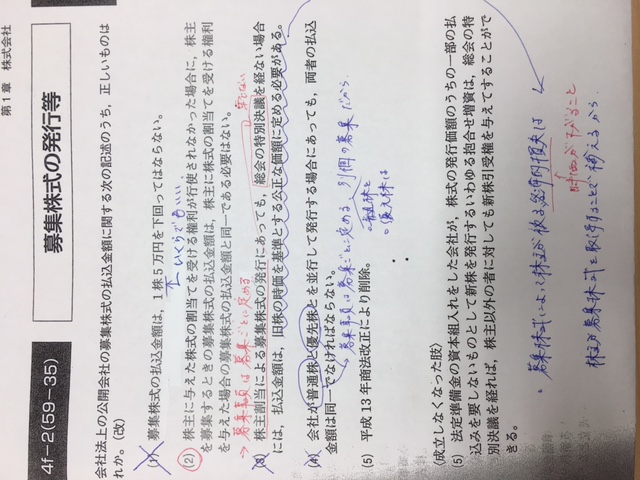 第1章 株式会社
募集株式の発行等
4f－2(59－35)
会社法上の公開会社の募集株式の払込金額に関する次の記述のうち，正しいものは
れか。（改）
(1) 募集株式の払込金額は，1株5万円を下回ってはならない。
いくらでもいい
(2) 株主に与えた株式の割当てを受ける権利が行使されなかった場合に，株主
を募集するときの募集株式の払込金額は，株主に株式の割当てを受ける権利
を与えた場合の募集株式の払込金額と同一である必要はない。
→募集事項は募集ごとに定める
(3) 株主割当による募集株式の発行にあっても，総会の特別決議を経ない場合
には，払込金額は，旧株の時価を基準とする公正な価額に定める必要がある。
(4) 会社が普通株と優先株とを並行して発行する場合にあっても，両者の払込
金額は同一でなければならない。
→募集事項は募集ごとに定める 別個の募集だから
(5) 平成13年商法改正により削除。
〈成立しなくなった肢〉
(5) 法定準備金の資本組入れをした会社が，株式の発行価額のうちの一部の払
込みを要しないものとして新株を発行するいわゆる抱合せ増資は，総会の特
別決議を経れば，株主以外の者に対しても新株引受権を与えてすることがで
きる。
募集株式によって株主が被る経済的損失は
株主が募集株式を取得することで補えるから